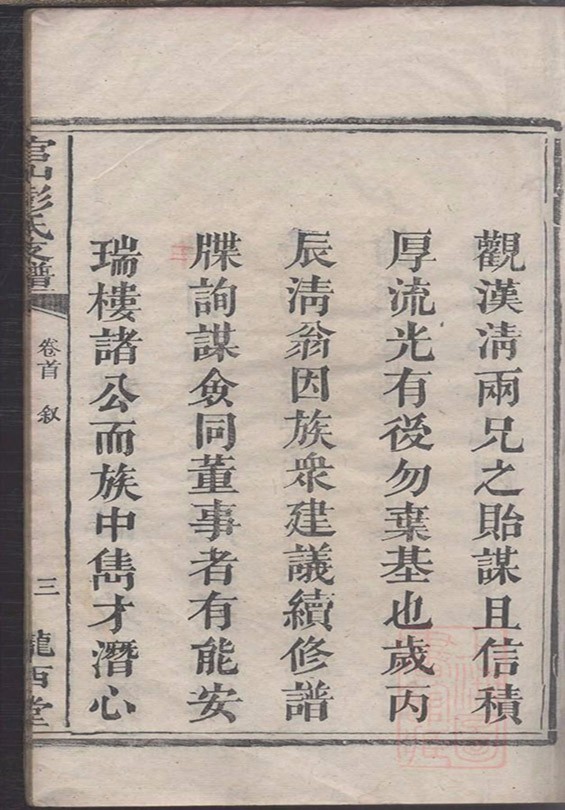 觀漢淸兩兄之貽謀且信積
厚流光有後勿棄基也歲丙
辰淸翁因族衆建議續修譜
牒詢謀僉同董事者有能安
瑞樓諸公而族中雋才潛心
官山彭氏支譜
卷首 叙
三
隴西堂